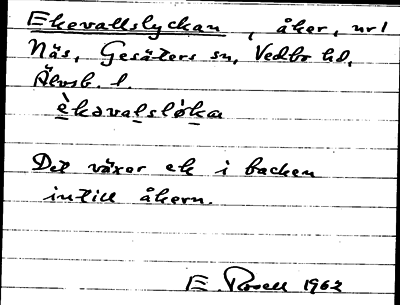 Ekevallslyckan, åker, nr 1
Näs, Gesäters sn, Vedbo hd,
Älvsb. l.
èkəvalsløka
Det växer ek i backen
intill åkern.
E. Rosell 1962